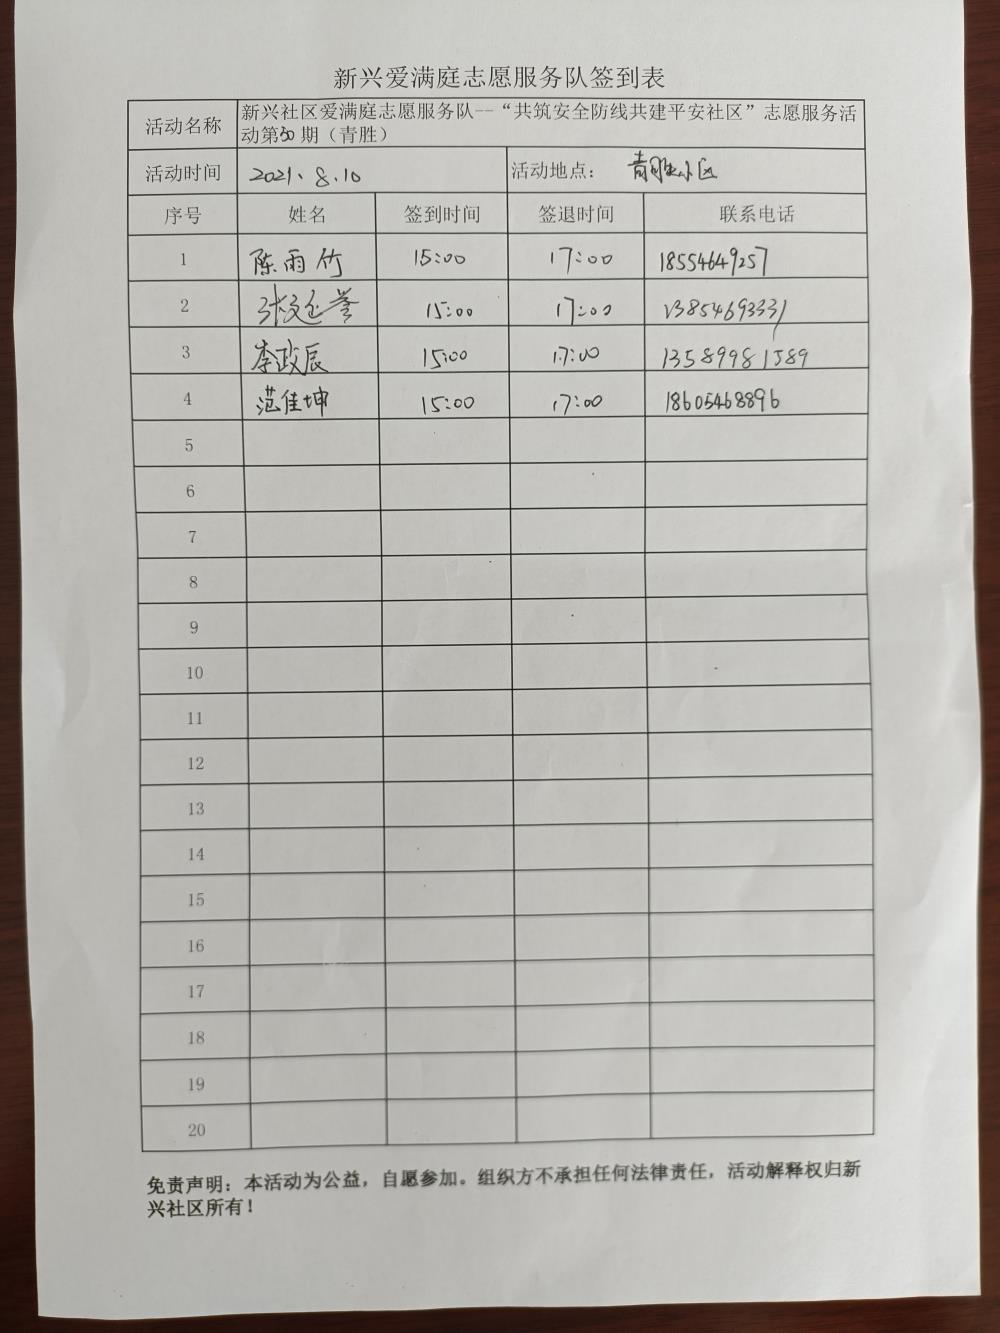 新兴爱满庭志愿服务队签到表
活动名称 新兴社区爱满庭志愿服务队--“共筑安全防线共建平安社区”志愿服务活
动第30期（青胜）
活动时间 2021、8.10 活动地点： 青胜小区
序号 姓名 签到时间 签退时间 联系电话
1 陈雨竹 15:00 17:00 18554649257
2 张延誉 15:00 17:00 13854693331
3 李政辰 15:00 17:00 13589981589
4 范佳坤 15:00 17:00 18605468896
5
6
7
8
9
10
11
12
13
14
15
16
17
18
19
20
免责声明：本活动为公益，自愿参加。组织方不承担任何法律责任，活动解释权归新
兴社区所有！